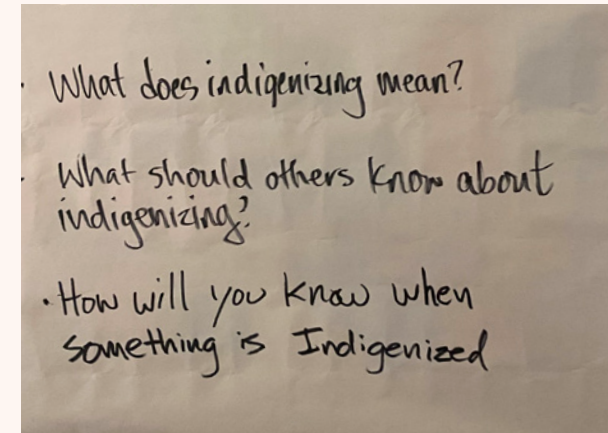 · What does indigenizing mean?
· What should others know about
indigenizing?
· How will you know when
something is Indigenized